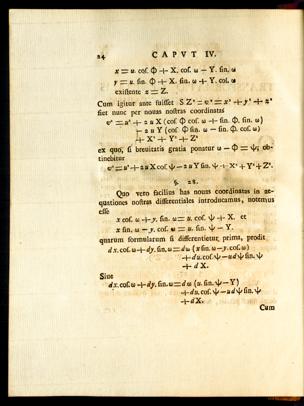 24 CAPVT IV.
x = u. cof. Φ + X. cof. ω − Y. fin. ω
y = u. fin. Φ + X. fin. ω + Y. cof. ω
exiftente z = Z.
Cum igitur ante fuiffet S Z² = v² = x² + y² + z²
fiet nunc per nouas noftras coordinatas
v² = u² + 2 u X (cof Φ cof. ω + fin. Φ. fin. ω)
− 2 u Y (cof Φ fin. ω − fin. Φ. cof. ω)
+ X² + Y² + Z²
ex quo, fi breuitatis gratia ponatur ω − Φ = ψ; ob-
tinebitur
v² = u² + 2 u X cof. ψ − 2 u Y fin. ψ + X² + Y² + Z².
§. 28.
Quo vero facilius has nouas coordinatas in ae-
quationes noftras differentiales introducamus, notemus
effe
x cof. ω + y. fin. ω = u. cof. ψ + X. et
x fin. ω − y. cof. ω = u. fin. ψ − Y.
quarum formularum fi differentietur, prima, prodit
dx. cof. ω + dy. fin. ω = dω (x fin. ω − y. cof. ω)
+ du. cof. ψ − u dψ fin. ψ
+ d X.
Siue
dx. cof. ω + dy. fin. ω = dω (u. fin. ψ − Y)
+ du. cof. ψ − u dψ fin. ψ
+ d X.
Cum